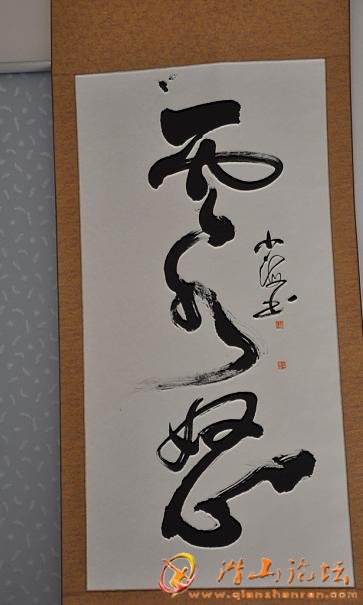 云水怒
潜山论坛
www.qianshanren.com